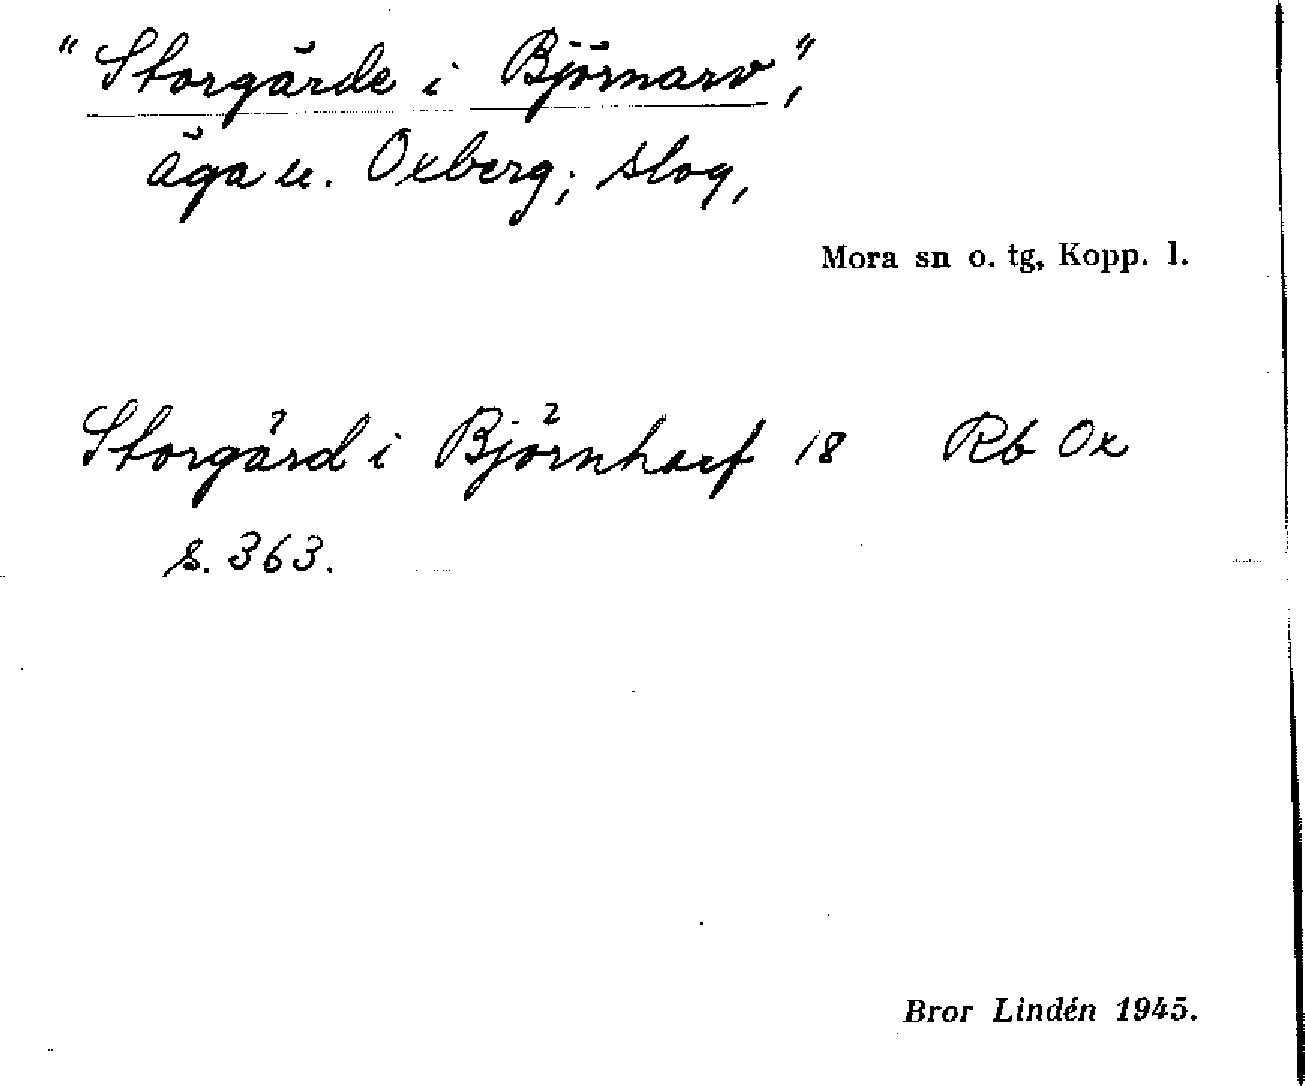 "Storgärde i Björnarv",
äga u. Oxberg; slog,
Mora sn o. tg, Kopp. l.
Storgärd i Björnharf 18 Rb Ox
s. 363.
Bror Lindén 1945.